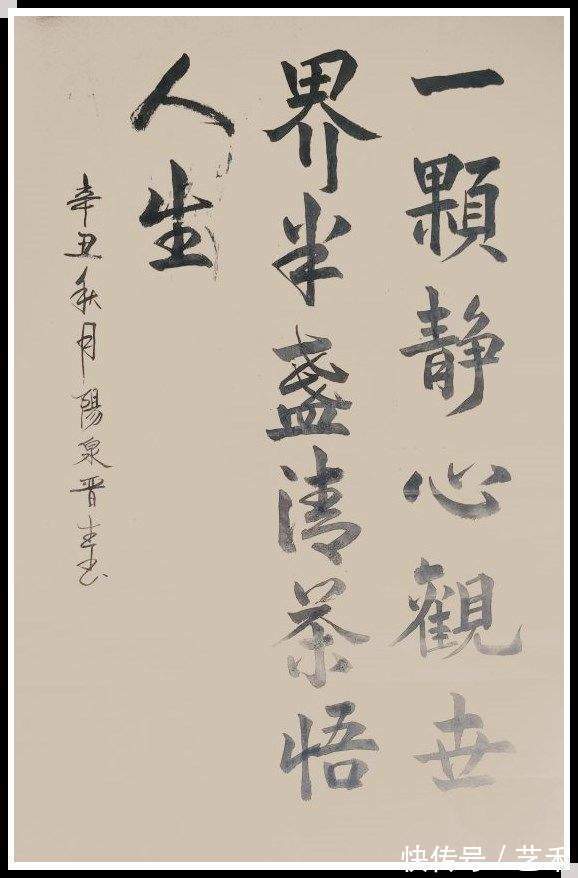 一顆静心觀世
界半盞清茶悟
人生
辛丑秋月陽泉晋生书
快传号/艺和